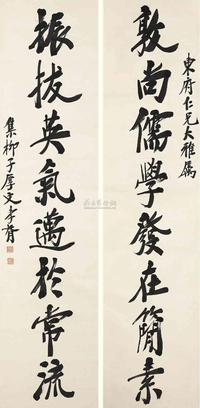 東府仁兄大雅屬
敦尚儒學發在簡素
振拔英氣邁於常流
集柳子厚文李胥